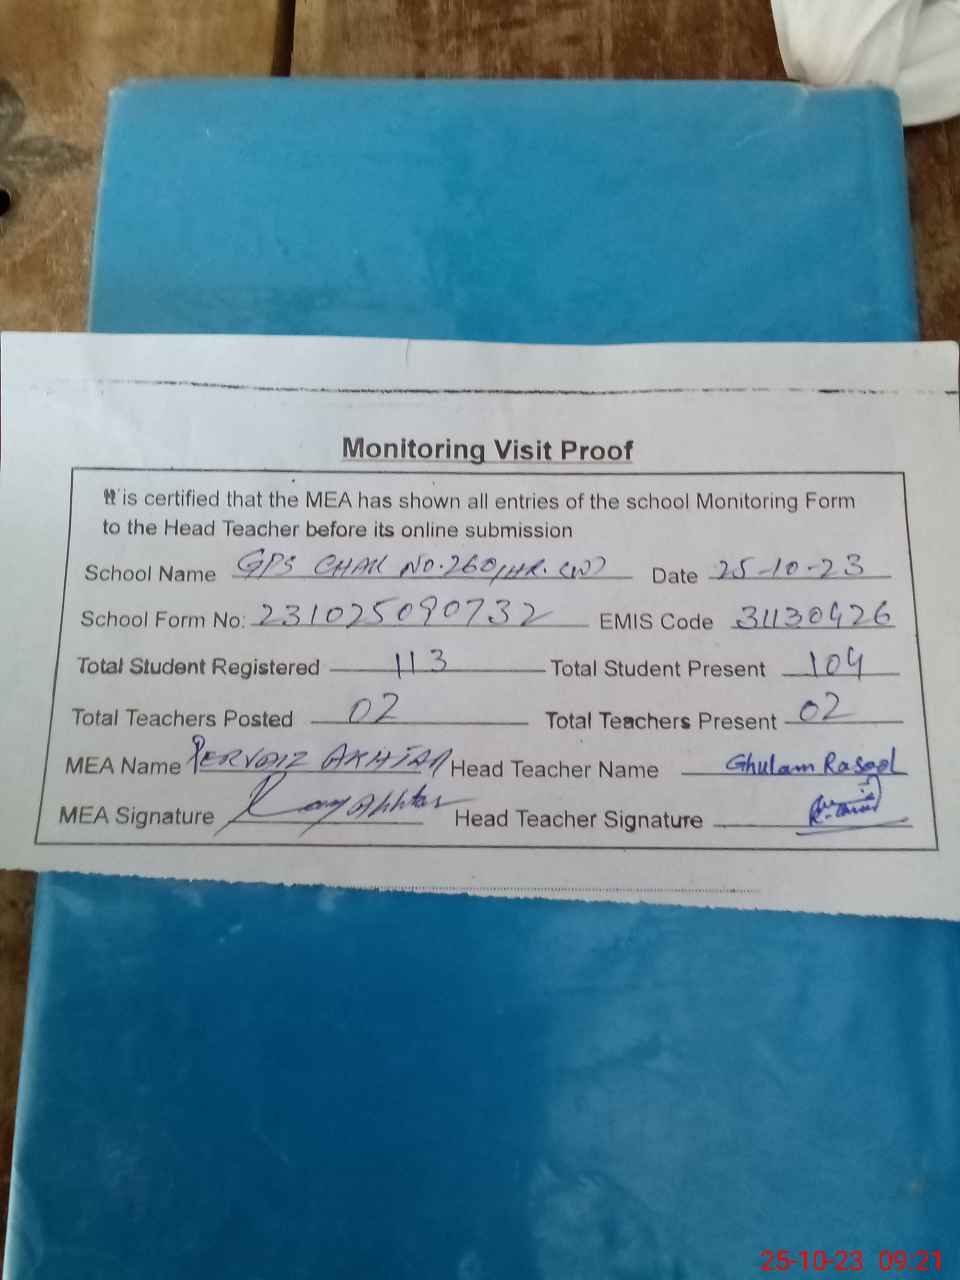 Monitoring Visit Proof
It is certified that the MEA has shown all entries of the school Monitoring Form
to the Head Teacher before its online submission
School Name GPS CHAK NO.260/HR.(W) Date 25-10-23
School Form No: 231025090732 EMIS Code 31130426
Total Student Registered 113 Total Student Present 104
Total Teachers Posted 02 Total Teachers Present 02
MEA Name PERVAIZ AKHTAR Head Teacher Name Ghulam Rasool
MEA Signature Akhtar Head Teacher Signature
25-10-23 09:21